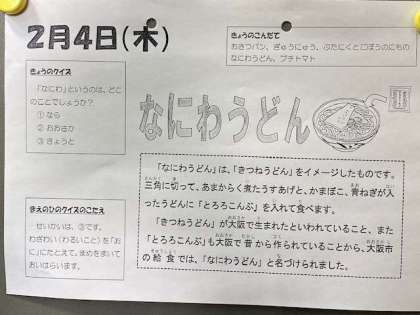 2月4日(木)
きょうのこんだて
おきつパン、ぎゅうにゅう、ぶたにくとごぼうのにもの
なにわうどん、プチトマト
きょうのクイズ
「なにわ」というのは、どこ
のことでしょうか?
① なら
② おおさか
③ きょうと
なにわうどん
「なにわうどん」は、「きつねうどん」をイメージしたものです。
三角に切って、あまからく煮たうすあげと、かまぼこ、青ねぎが入
ったうどんに「とろろこんぶ」を入れて食べます。
「きつねうどん」が大阪で生まれたといわれていること、また
「とろろこんぶ」も大阪で昔から作られていることから、大阪市
の給食では、「なにわうどん」と名づけられました。
まえのひのクイズのこたえ
せいかいは、③です。
わざわい(わるいこと)を「お
に」にたとえて、まめをまいて
おいはらいます。